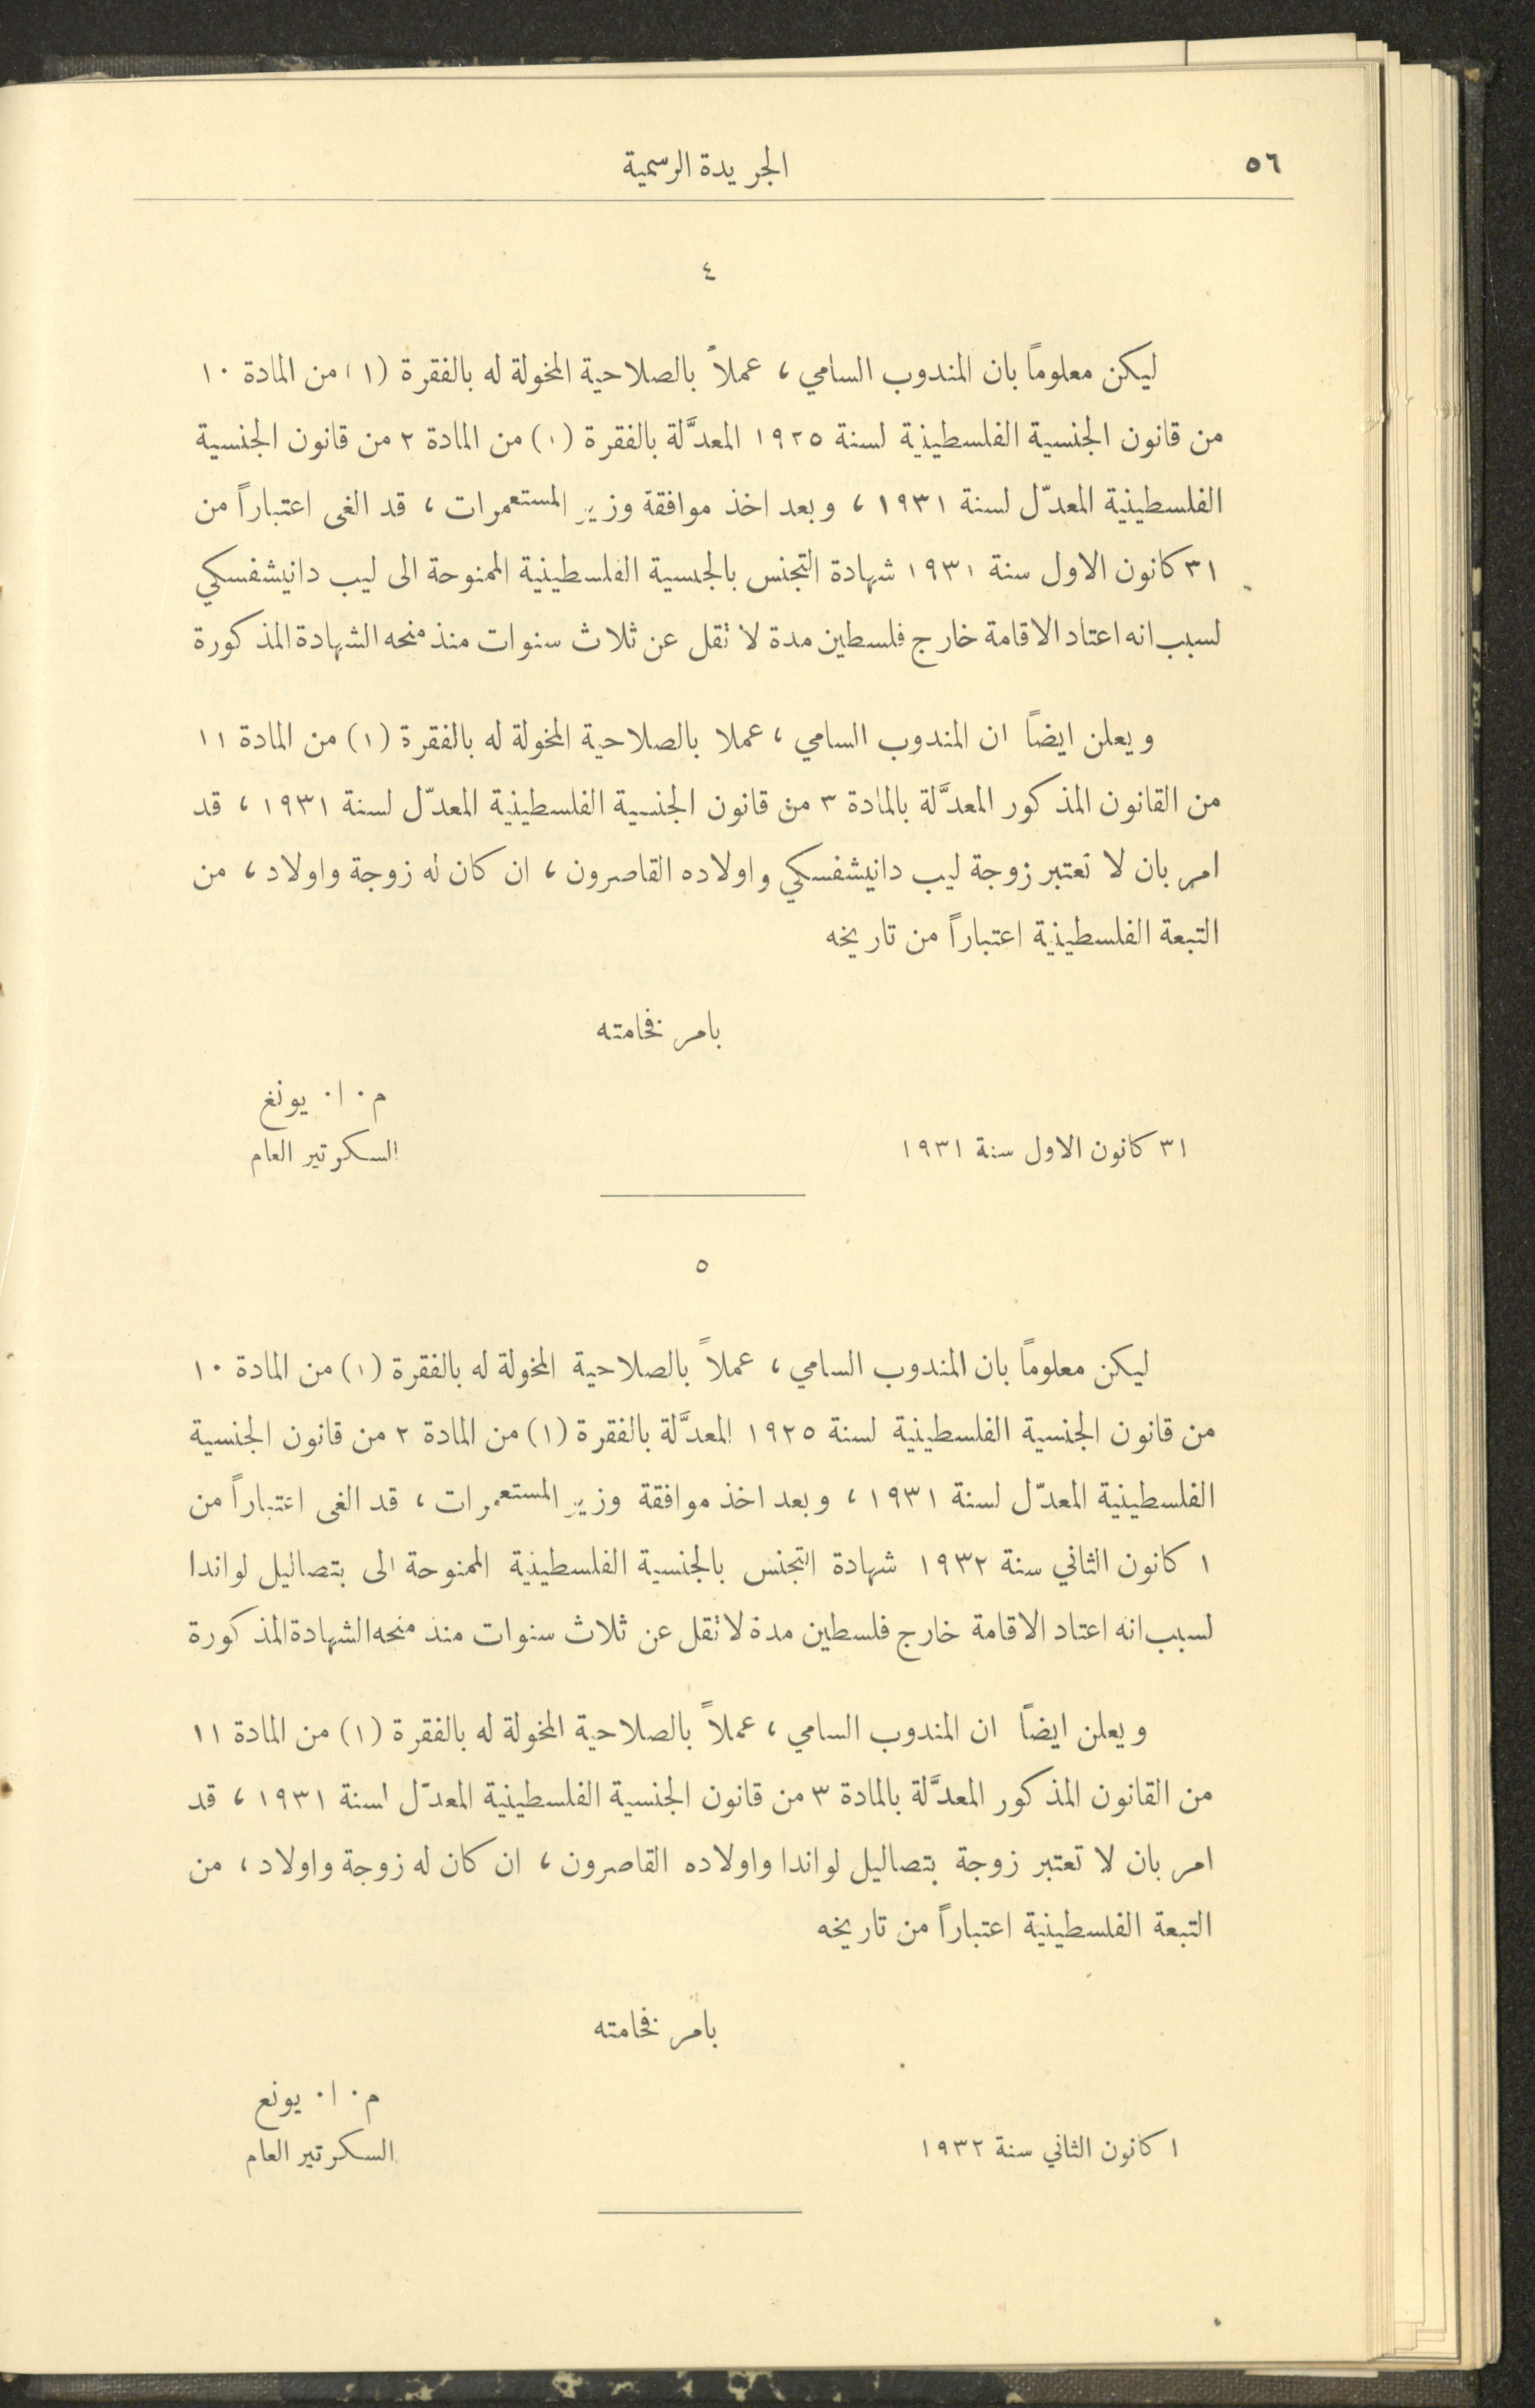 ٥٦
الجريدة الرسمية
٤
ليكن معلوماً بان المندوب السامي ، عملاً بالصلاحية المخولة له بالفقرة (١) من المادة ١٠
من قانون الجنسية الفلسطينية لسنة ١٩٢٥ المعدَّلة بالفقرة (١) من المادة ٢ من قانون الجنسية
الفلسطينية المعدّل لسنة ١٩٣١ ، وبعد اخذ موافقة وزير المستعمرات ، قد الغى اعتباراً من
٣١ كانون الاول سنة ١٩٣١ شهادة التجنس بالجنسية الفلسطينية الممنوحة الى ليب دانيشفسكي
لسبب انه اعتاد الاقامة خارج فلسطين مدة لا تقل عن ثلاث سنوات منذ منحه الشهادة المذكورة
ويعلن ايضاً ان المندوب السامي ، عملا بالصلاحية المخولة له بالفقرة (١) من المادة ١١
من القانون المذكور المعدَّلة بالمادة ٣ من قانون الجنسية الفلسطينية المعدّل لسنة ١٩٣١ ، قد
امر بان لا تعتبر زوجة ليب دانيشفسكي واولاده القاصرون ، ان كان له زوجة واولاد ، من
التبعة الفلسطينية اعتباراً من تاريخه
بامر فخامته
م . ا . يونغ
٣١ كانون الاول سنة ١٩٣١
السكرتير العام
٥
ليكن معلوماً بان المندوب السامي ، عملاً بالصلاحية المخولة له بالفقرة (١) من المادة ١٠
من قانون الجنسية الفلسطينية لسنة ١٩٢٥ المعدَّلة بالفقرة (١) من المادة ٢ من قانون الجنسية
الفلسطينية المعدّل لسنة ١٩٣١ ، وبعد اخذ موافقة وزير المستعمرات ، قد الغى اعتباراً من
١ كانون الثاني سنة ١٩٣٢ شهادة التجنس بالجنسية الفلسطينية الممنوحة الى بتصاليل لواندا
لسبب انه اعتاد الاقامة خارج فلسطين مدة لا تقل عن ثلاث سنوات منذ منحه الشهادة المذكورة
ويعلن ايضاً ان المندوب السامي ، عملاً بالصلاحية المخولة له بالفقرة (١) من المادة ١١
من القانون المذكور المعدَّلة بالمادة ٣ من قانون الجنسية الفلسطينية المعدّل لسنة ١٩٣١ ، قد
امر بان لا تعتبر زوجة بتصاليل لواندا واولاده القاصرون ، ان كان له زوجة واولاد ، من
التبعة الفلسطينية اعتباراً من تاريخه
بامر فخامته
م . ا . يونع
١ كانون الثاني سنة ١٩٣٢
السكرتير العام